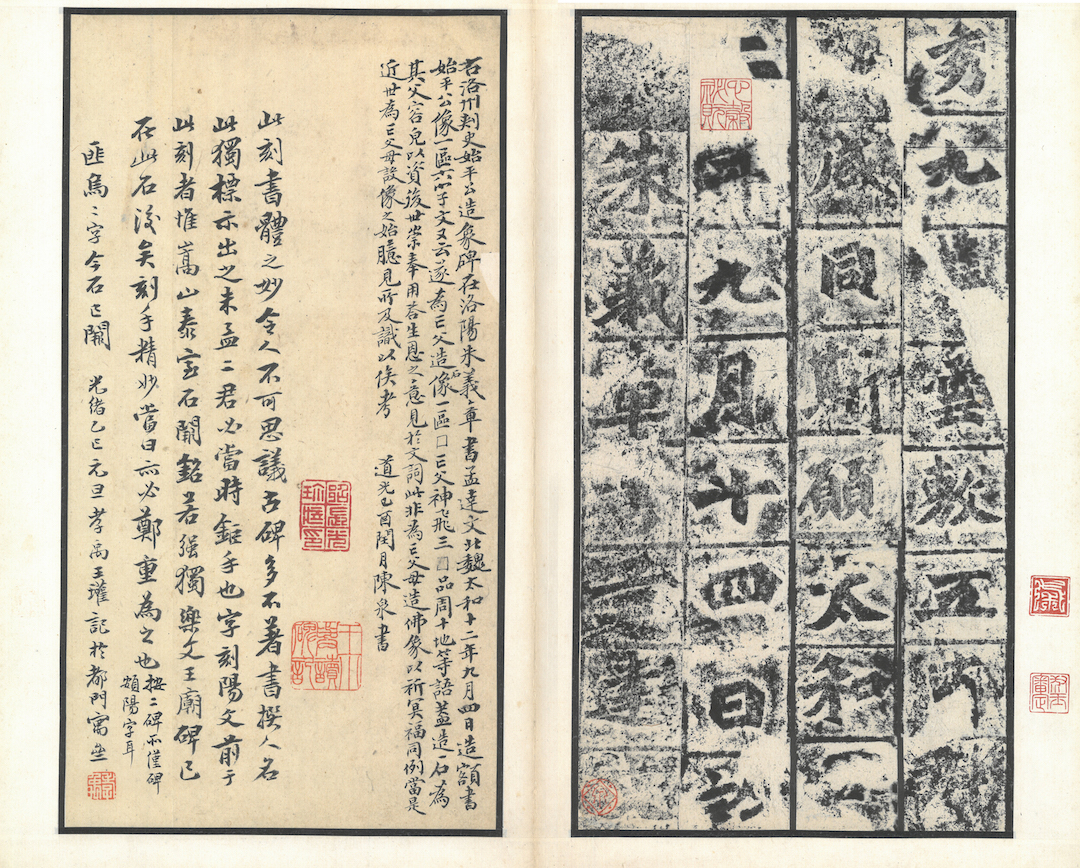 秀九棘雲敷五有
咸同斯願太和廿
二年九月十四日訖
朱義章書孟達文
右洛州刺史始平公造象碑在洛陽朱義章書孟達文北魏太和十二年九月四日造額書
始平公像一區六小字文又云遂為亡父造像一區□亡父神飛三□品周十地等語蓋造一石為
其父容皃以資後世崇奉用答生恩之意見於文詞此非為亡父母造佛像以祈冥福同例當是
近世為亡父母設像之始臆見所及識以俟考 道光己酉閏月陳泉書
此刻書體之妙令人不可思議古碑多不著書撰人名
此獨標示出之朱孟二君必當時鉅手也字刻陽文前于
此刻者惟嵩山泰室石闕銘若強獨樂文王廟碑已
在此石後矣刻手精妙當日亦必鄭重為之也
按二碑不僅碑
額陽字耳
匪烏二字今石已闕 光緒乙巳元旦孝禹王瓘記於都門寓齋